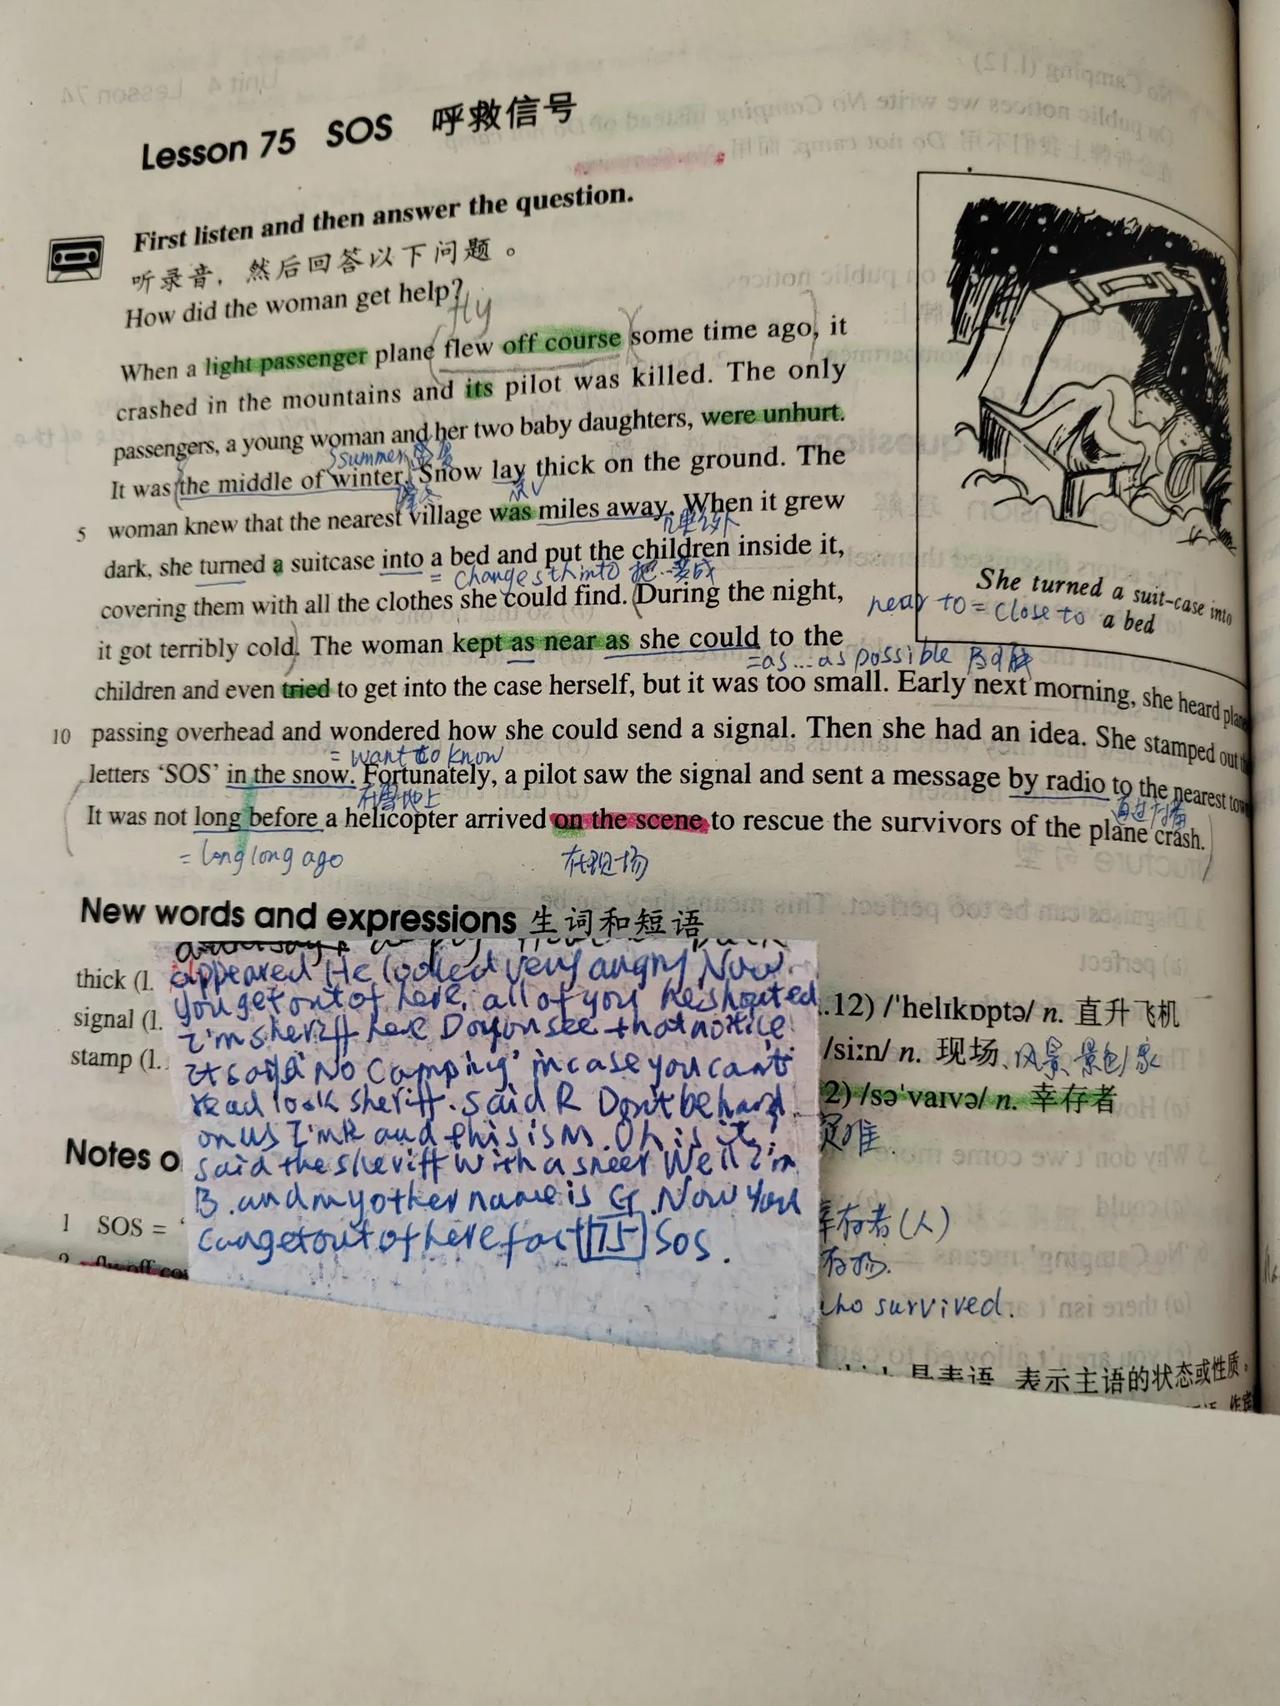 Lesson 75 SOS 呼救信号
First listen and then answer the question.
听录音，然后回答以下问题。
How did the woman get help?
fly
When a light passenger plane flew off course some time ago, it
crashed in the mountains and its pilot was killed. The only
passengers, a young woman and her two baby daughters, were unhurt.
summer
It was the middle of winter. Snow lay thick on the ground. The
5 woman knew that the nearest village was miles away. When it grew
dark, she turned a suitcase into a bed and put the children inside it,
= change sth into 把…变成
covering them with all the clothes she could find. During the night,
it got terribly cold. The woman kept as near as she could to the
=as...as possible
children and even tried to get into the case herself, but it was too small. Early next morning, she heard plan
10 passing overhead and wondered how she could send a signal. Then she had an idea. She stamped out t
= want to know
letters ‘SOS’ in the snow. Fortunately, a pilot saw the signal and sent a message by radio to the nearest tow
在雪地上
It was not long before a helicopter arrived on the scene to rescue the survivors of the plane crash.
= long long ago
在现场
near to = close to
She turned a suit-case into
a bed
New words and expressions 生词和短语
thick (l.
signal (l.
stamp (l.
.12) /ˈhelɪkɒptə/ n. 直升飞机
/siːn/ n. 现场、风景 景色
2) /səˈvaɪvə/ n. 幸存者
幸存者(人)
who survived.
是表语, 表示主语的状态或性质。
Notes o
1 SOS = ‘
2 fly off cou
appeared He looked very angry Now.
you get out of here, all of you he shouted
I'm sheriff here Do you see that notice
It says 'No Camping' in case you can't
read look sheriff. said R Don't be hard
on us I'm R and this is M. Oh is it,
said the sheriff with a sneer Well I'm
B. and my other name is G. Now you
can get out of here fast 75 SOS.